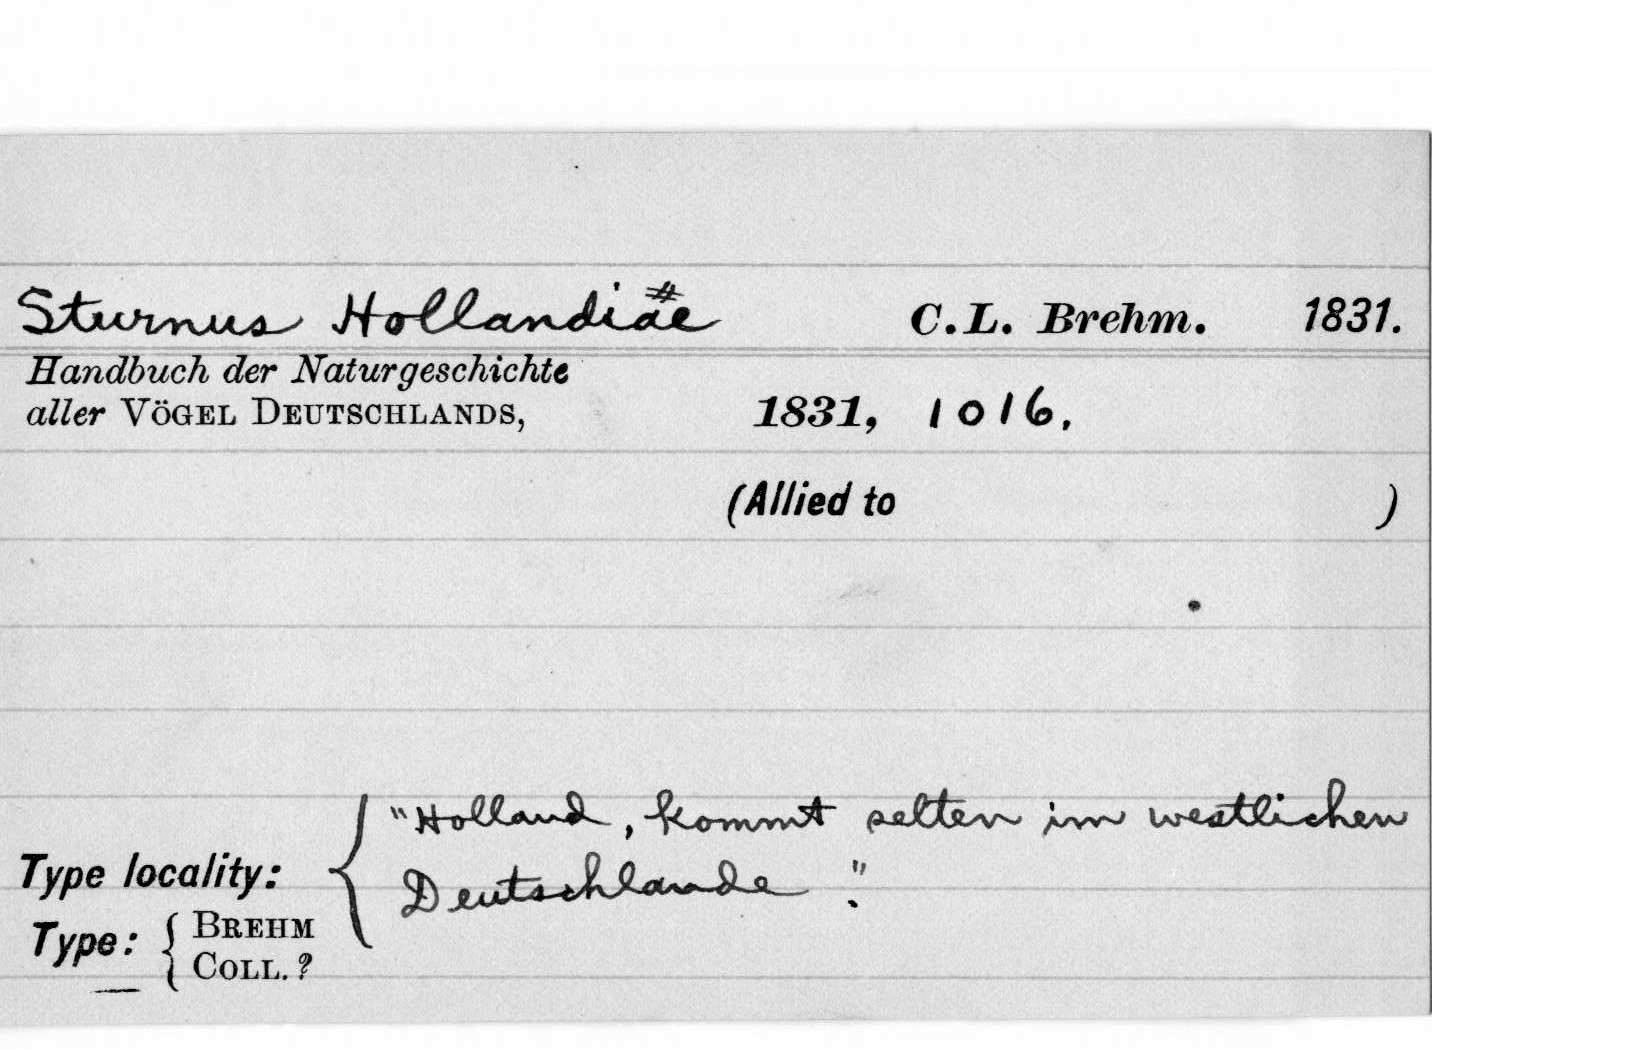 Sturnus Hollandiae # C.L. Brehm. 1831.
Handbuch der Naturgeschichte
aller VÖGEL DEUTSCHLANDS, 1831, 1016.
(Allied to )
"Holland, kommt selten im westlichen
Deutschlande."
Type locality:
Type: { BREHM
COLL. ?